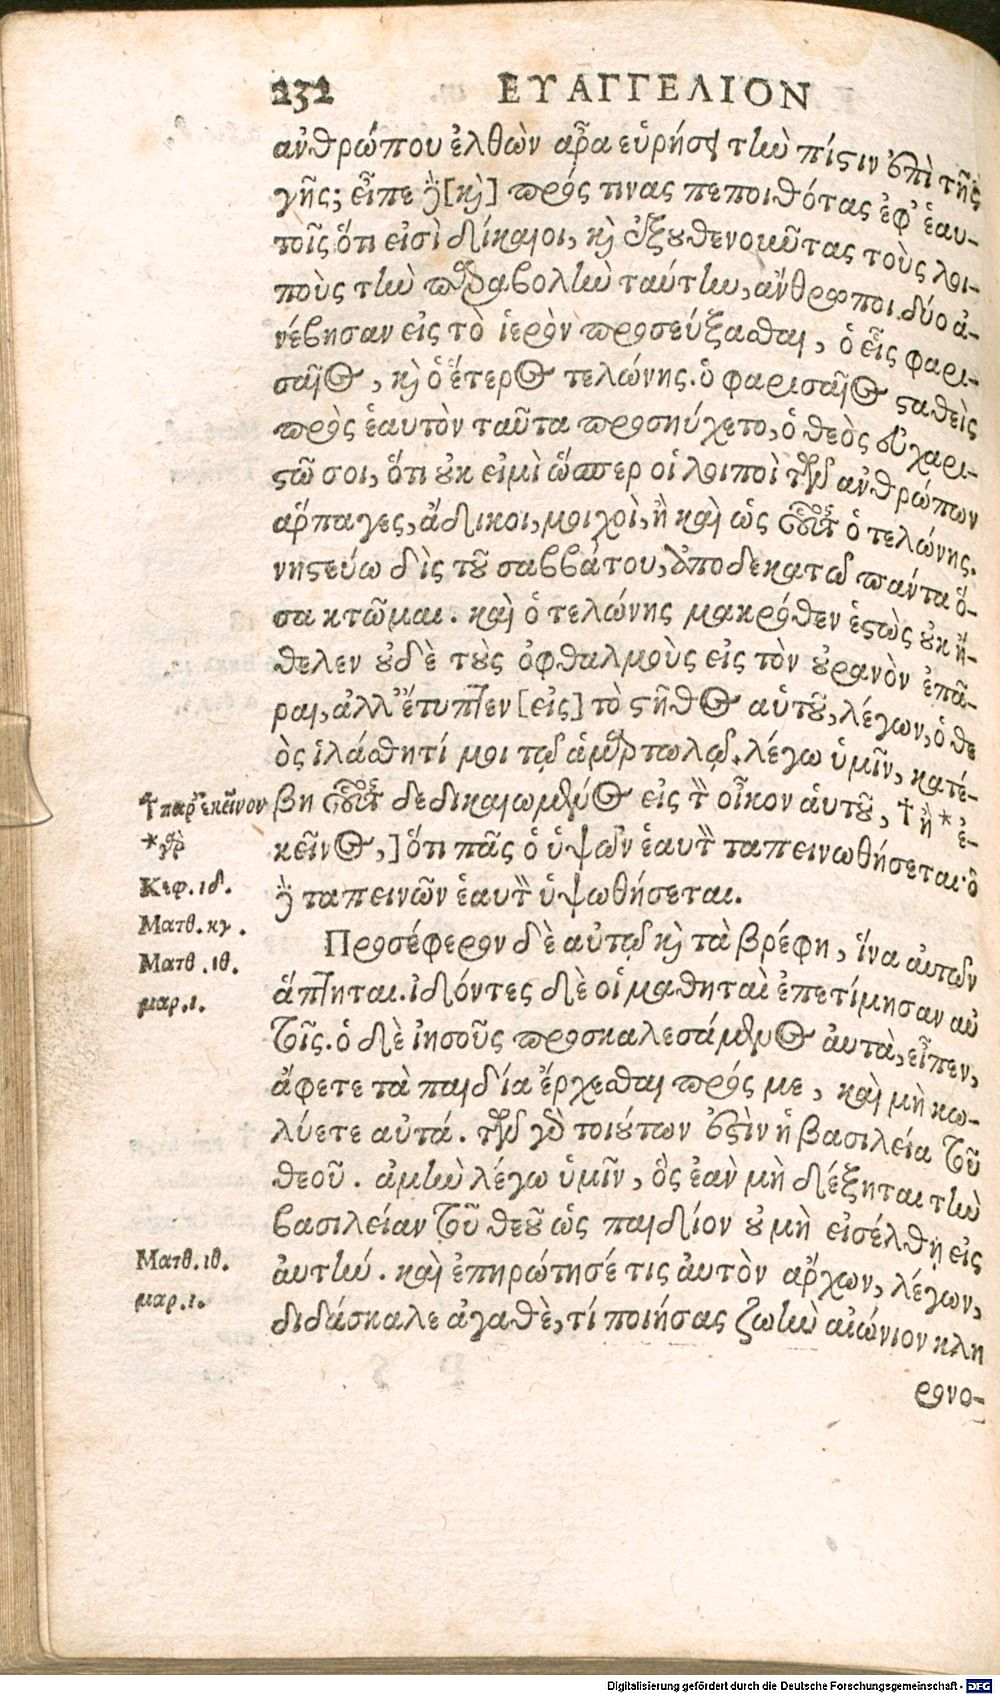 232 ΕΥΑΓΓΕΛΙΟΝ
ανθρώπου ἐλθὼν ἆρα εὑρήσει τὴν πίστιν ἐπὶ τῆς
γῆς; εἶπε δὲ [καὶ] πρός τινας πεποιθότας ἐφ' ἑαυ-
τοῖς ὅτι εἰσὶ δίκαιοι, καὶ ἐξουθενοῦντας τοὺς λοι-
ποὺς τὴν παραβολὴν ταύτην, ἄνθρωποι δύο ἀ-
νέβησαν εἰς τὸ ἱερὸν προσεύξασθαι, ὁ εἷς φαρι-
σαῖος, καὶ ὁ ἕτερος τελώνης. ὁ φαρισαῖος σταθεὶς
πρὸς ἑαυτὸν ταῦτα προσηύχετο, ὁ θεὸς εὐχαρι-
στῶ σοι, ὅτι οὐκ εἰμὶ ὥσπερ οἱ λοιποὶ τῶν ανθρώπων
ἅρπαγες, ἄδικοι, μοιχοὶ, ἢ καὶ ὡς οὗτος ὁ τελώνης.
νηστεύω δὶς τοῦ σαββάτου, ἀποδεκατῶ πάντα ὅ-
σα κτῶμαι. καὶ ὁ τελώνης μακρόθεν ἑστὼς οὐκ ἤ-
θελεν οὐδὲ τοὺς ὀφθαλμοὺς εἰς τὸν οὐρανὸν ἐπᾶ-
ραι, ἀλλ' ἔτυπτεν [εἰς] τὸ στῆθος αὑτοῦ, λέγων, ὁ θε
ὸς ἱλάσθητί μοι τῷ ἁμαρτωλῷ. λέγω ὑμῖν, κατέ-
† παρ' εκεῖνον βη οὗτος δεδικαιωμένος εἰς τὸν οἶκον ἁυτοῦ, † ἢ * ἐ-
* γὰρ κεῖνος,] ὅτι πᾶς ὁ ὑψῶν ἑαυτὸν ταπεινωθήσεται· ὁ
Κεφ. ιδ. δὲ ταπεινῶν ἑαυτὸν ὑψωθήσεται.
Ματθ. κγ. Προσέφερον δὲ αὐτῷ καὶ τὰ βρέφη, ἵνα αὐτῶν
Ματθ. ιθ. ἅπτηται. ἰδόντες δὲ οἱ μαθηταὶ ἐπετίμησαν αὐ
μαρ. ι. τοῖς. ὁ δὲ ἰησοῦς προσκαλεσάμενος ἀυτὰ, εἶπεν,
ἄφετε τὰ παιδία ἔρχεσθαι πρός με, καὶ μὴ κω-
λύετε αὐτά. τῶν γὰρ τοιούτων ἐστὶν ἡ βασιλεία τοῦ
θεοῦ. ἀμὴν λέγω ὑμῖν, ὃς ἐὰν μὴ δέξηται τὴν
βασιλείαν τοῦ θεοῦ ὡς παιδίον οὐ μὴ εἰσέλθῃ εἰς
Ματθ. ιθ. ἀυτήν. καὶ ἐπηρώτησέ τις ἀυτὸν ἄρχων, λέγων,
μαρ. ι. διδάσκαλε ἀγαθὲ, τί ποιήσας ζωὴν αἰώνιον κλη
ρονο-
Digitalisierung gefördert durch die Deutsche Forschungsgemeinschaft - DFG